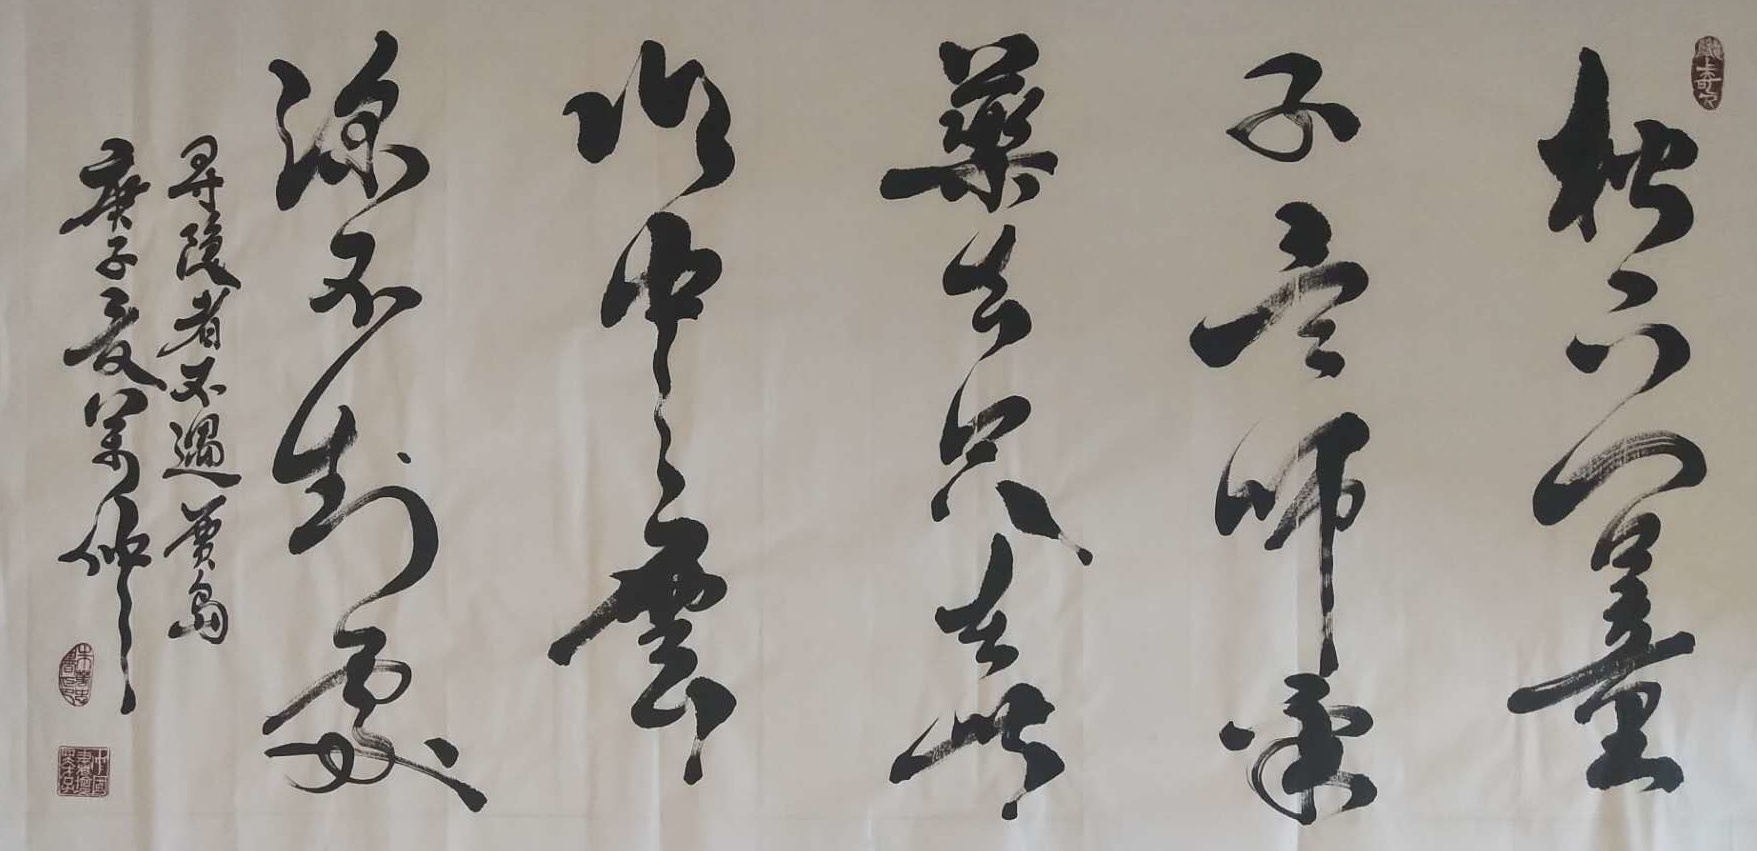 松下問童
子言師采
藥去只在此
山中雲
深不知處
尋隱者不遇賈島
庚子夏萬